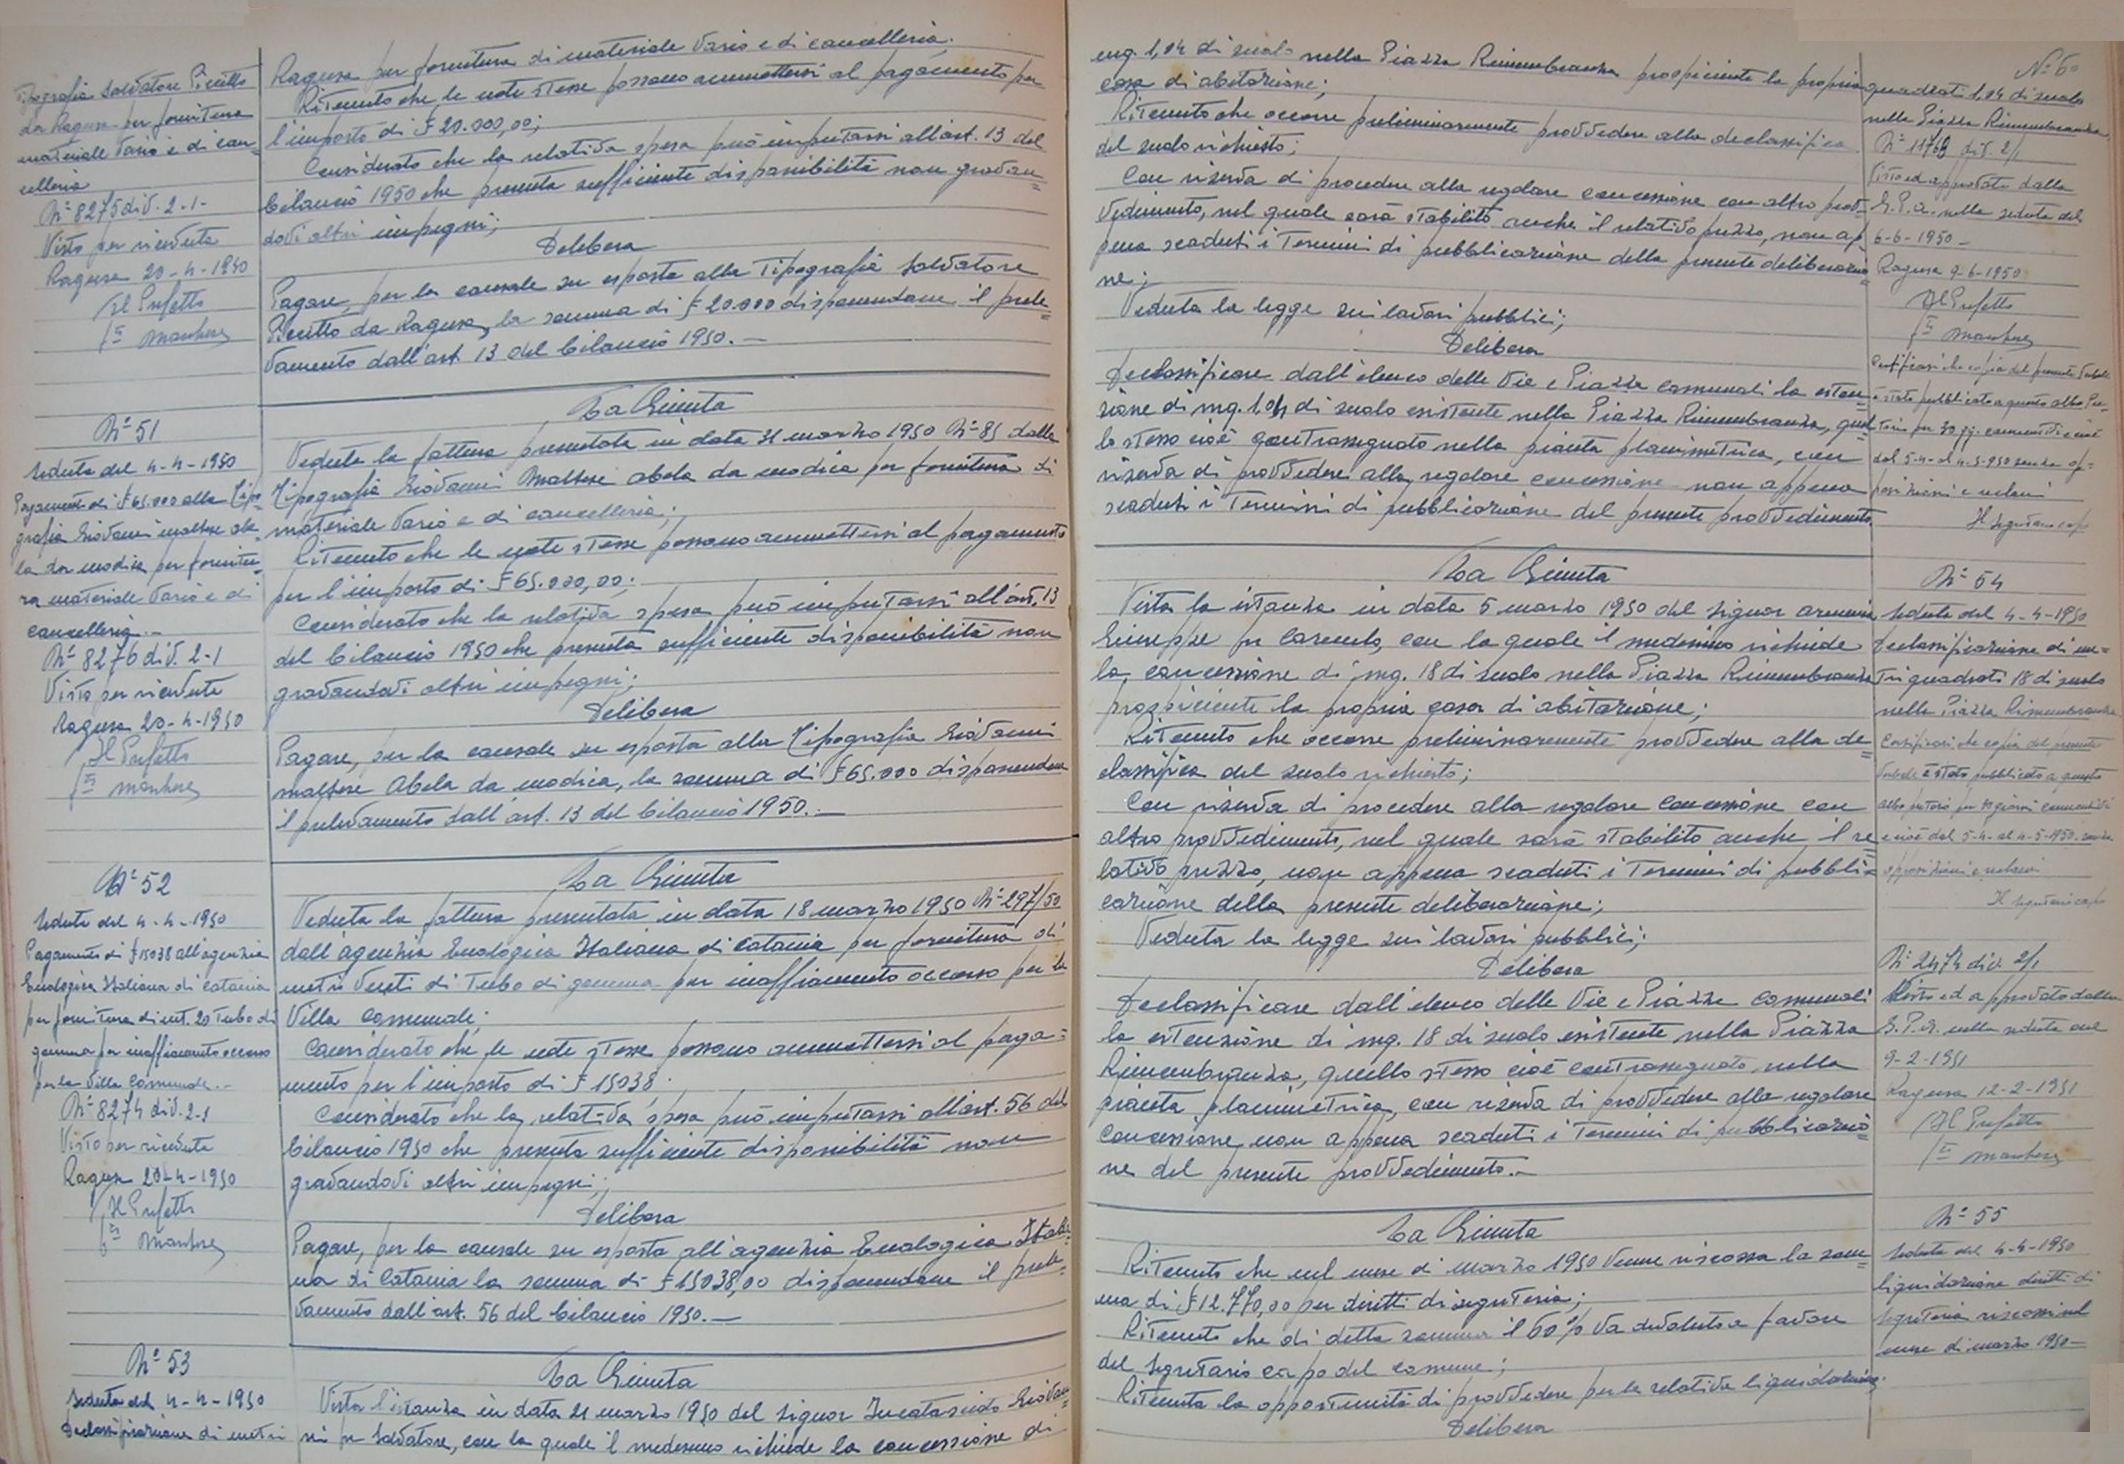 Tipografia Salvatore Picitto
da Ragusa per fornitura
materiale vario e di can=
celleria
N° 8275 div. 2-1-
Visto per ricevuta
Ragusa 20-4-1950
Il Prefetto
Ragusa per fornitura di materiale vario e di cancelleria.
Ritenuto che le note stesse possono ammettersi al pagamento per
l'importo di £ 20.000,00;
Considerato che la relativa spesa può imputarsi all'art. 13 del
bilancio 1950 che presenta sufficiente disponibilità non gravan=
dovi altri impegni;
Delibera
Pagare, per la causale su esposta alla Tipografia Salvatore
Picitto da Ragusa, la somma di £ 20.000 disponendone il prele=
vamento dall'art 13 del bilancio 1950.—
N° 51
Seduta del 4-4-1950
Pagamento di £ 65.000 alla Tipo
grafia Giovanni Maltese Abe=
la da Modica per fornitu=
ra materiale vario e di
cancelleria.—
N° 8276 div. 2-1
Visto per ricevuta
Ragusa 20-4-1950
Il Prefetto
La Giunta
Veduta la fattura presentata in data 31 marzo 1950 N° 85 dalla
Tipografia Giovanni Maltese Abela da Modica per fornitura di
materiale vario e di cancelleria;
Ritenuto che le note stesse possono ammettersi al pagamento
per l'importo di £ 65.000,00;
Considerato che la relativa spesa può imputarsi all'art. 13
del bilancio 1950 che presenta sufficiente disponibilità non
gravandovi altri impegni;
Delibera
Pagare, per la causale su esposta alla Tipografia Giovanni
Maltese Abela da Modica, la somma di £ 65.000 disponendone
il prelevamento dall'art. 13 del bilancio 1950.—
N° 52
Seduta del 4-4-1950
Pagamento di £ 15038 all'agenzia
Enologica Italiana di Catania
per fornitura di mt. 20 tubo di
gomma per inaffiamento occorso
per la Villa Comunale.—
N° 8274 div. 2-1
Visto per ricevuta
Ragusa 20-4-1950
Il Prefetto
La Giunta
Veduta la fattura presentata in data 18 marzo 1950 N° 297/50
dall'agenzia Enologica Italiana di Catania per fornitura di
metri venti di tubo di gomma per inaffiamento occorso per la
Villa Comunale;
Considerato che le note stesse possono ammettersi al paga=
mento per l'importo di £ 15038.
Considerato che la relativa spesa può imputarsi all'art. 56 del
bilancio 1950 che presenta sufficiente disponibilità non
gravandovi altri impegni;
Delibera
Pagare, per la causale su esposta all'agenzia Enologica Italia=
na di Catania la somma di £ 15038,00 disponendone il prele=
vamento dall'art. 56 del bilancio 1950.—
N° 53
Seduta del 4-4-1950
Declassificazione di metri
La Giunta
Vista l'istanza in data 21 marzo 1950 del Signor Incatasciato Giovan=
ni fu Salvatore, con la quale il medesimo richiede la concessione di
mq. 1,04 di suolo nella Piazza Rimembranza prospiciente la propria
casa di abitazione;
Ritenuto che occorre preliminarmente provvedere alla declassifica
del suolo richiesto;
Con riserva di procedere alla regolare concessione con altro prov=
vedimento, nel quale sarà stabilito anche il relativo prezzo, non ap=
pena scaduti i termini di pubblicazione della presente deliberazio=
ne;
Veduta la legge sui lavori pubblici;
Delibera
Declassificare dall'elenco delle Vie e Piazze comunali la esten=
sione di mq. 1.04 di suolo esistente nella Piazza Rimembranza, quel=
lo stesso cioè contrassegnato nella pianta planimetrica, con
riserva di provvedere alla regolare concessione non appena
scaduti i termini di pubblicazione del presente provvedimento
N° 60
quadrati 1,04 di suolo
nella Piazza Rimembranza
N° 11768 div. 2/1
Visto ed approvato dalla
G.P.A. nella seduta del
6-6-1950-
Ragusa 9-6-1950
Il Prefetto
Certificasi che copia del presente verbale
è stata pubblicata a questo albo Pre=
torio per 30 gg. consecutivi e cioè
dal 5-4- al 4-5-950 senza op=
posizioni e reclami
Il Segretario capo
La Giunta
Vista la istanza in data 5 marzo 1950 del Signor Armenia
Giuseppe fu Carmelo, con la quale il medesimo richiede
la concessione di mq. 18 di suolo nella Piazza Rimembranza
prospiciente la propria casa di abitazione;
Ritenuto che occorre preliminarmente provvedere alla de=
classifica del suolo richiesto;
Con riserva di procedere alla regolare concessione con
altro provvedimento, nel quale sarà stabilito anche il re=
lativo prezzo, non appena scaduti i termini di pubbli=
cazione della presente deliberazione;
Veduta la legge sui lavori pubblici;
Delibera
Declassificare dall'elenco delle Vie e Piazze comunali
la estensione di mq. 18 di suolo esistente nella Piazza
Rimembranza, quello stesso cioè contrassegnato nella
pianta planimetrica, con riserva di provvedere alla regolare
concessione non appena scaduti i termini di pubblicazio=
ne del presente provvedimento.—
N° 54
Seduta del 4-4-1950
Declassificazione di me=
tri quadrati 18 di suolo
nella Piazza Rimembranza
Certificasi che copia del presente
verbale è stata pubblicata a questo
albo pretorio per 30 giorni consecutivi
e cioè dal 5-4- al 4-5-1950 senza
opposizioni e reclami
Il Segretario capo
N° 2474 div. 2/1
Visto ed approvato dalla
G.P.A. nella seduta del
9-2-1951
Ragusa 12-2-1951
Il Prefetto
La Giunta
Ritenuto che nel mese di marzo 1950 venne riscossa la som=
ma di £ 12.770,00 per diritti di segreteria;
Ritenuto che di detta somma il 60% va devoluto a favore
del Segretario capo del comune;
Ritenuta la opportunità di provvedere per la relativa liquidazione;
Delibera
N° 55
Seduta del 4-4-1950
liquidazione diritti di
Segreteria riscossi nel
mese di marzo 1950—